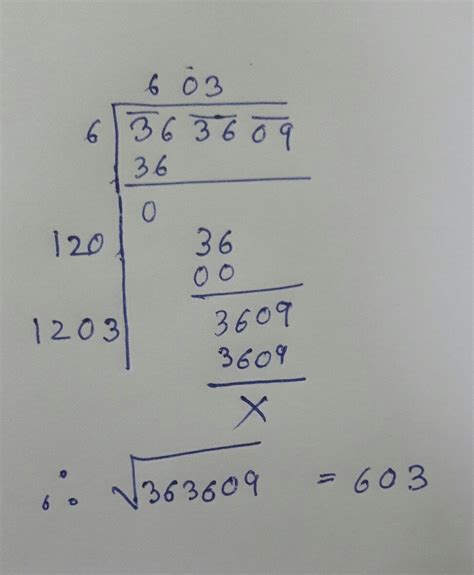 603
6 36 36 09
36
0
120 36
00
1203 3609
3609
X
∴ √363609 = 603